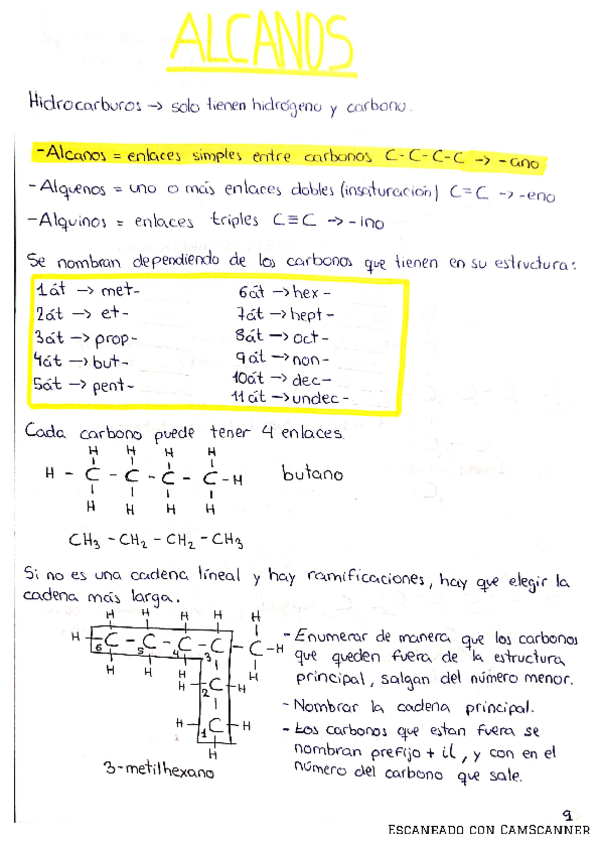 ALCANOS
Hidrocarburos → solo tienen hidrógeno y carbono.
-Alcanos = enlaces simples entre carbonos C-C-C-C → -ano
-Alquenos = uno o más enlaces dobles (insaturación) C=C → -eno
-Alquinos = enlaces triples C≡C → -ino
Se nombran dependiendo de los carbonos que tienen en su estructura:
1át → met-
2át → et-
3át → prop-
4át → but-
5át → pent-
6át → hex-
7át → hept-
8át → oct-
9át → non-
10át → dec-
11át → undec-
Cada carbono puede tener 4 enlaces.
H H H H
H - C - C - C - C - H butano
H H H H
CH₃ - CH₂ - CH₂ - CH₃
Si no es una cadena lineal y hay ramificaciones, hay que elegir la
cadena más larga.
H H H H H
H - C - C - C - C - C - H
6 5 4 3
H H H H
H - C - H
2
H - C - H
1
H
3-metilhexano
- Enumerar de manera que los carbonos
que queden fuera de la estructura
principal, salgan del número menor.
- Nombrar la cadena principal.
- Los carbonos que estan fuera se
nombran prefijo + il, y con en el
número del carbono que sale.
9
ESCANEADO CON CAMSCANNER